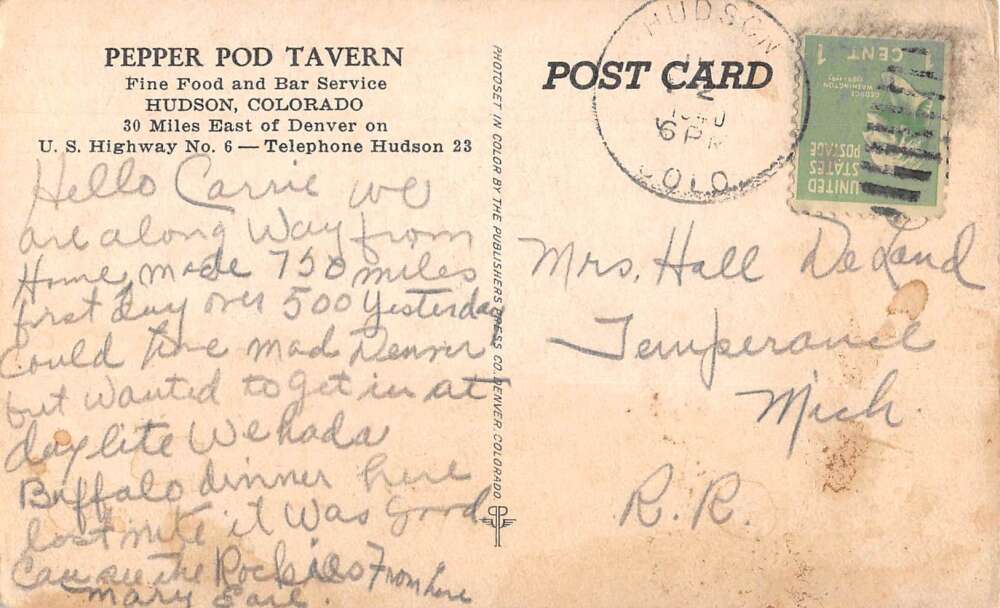 PEPPER POD TAVERN
Fine Food and Bar Service
HUDSON, COLORADO
30 Miles East of Denver on
U. S. Highway No. 6 — Telephone Hudson 23
Hello Carrie we
are along Way from
Home, made 750 miles
first day over 500 yesterday
Could have mad Denver
but wanted to get in at
day lite We had a
Buffalo dinner here
last nite it was good
Can see the Rockies From here
Mary Earl.
PHOTOSET IN COLOR BY THE PUBLISHERS PRESS CO. DENVER. COLORADO.
POST CARD
HUDSON
2
1940
6 PM
COLO.
1 CENT 1
GEORGE WASHINGTON
UNITED STATES POSTAGE
Mrs. Hall DeLand
Temperance
Mich.
R.R.